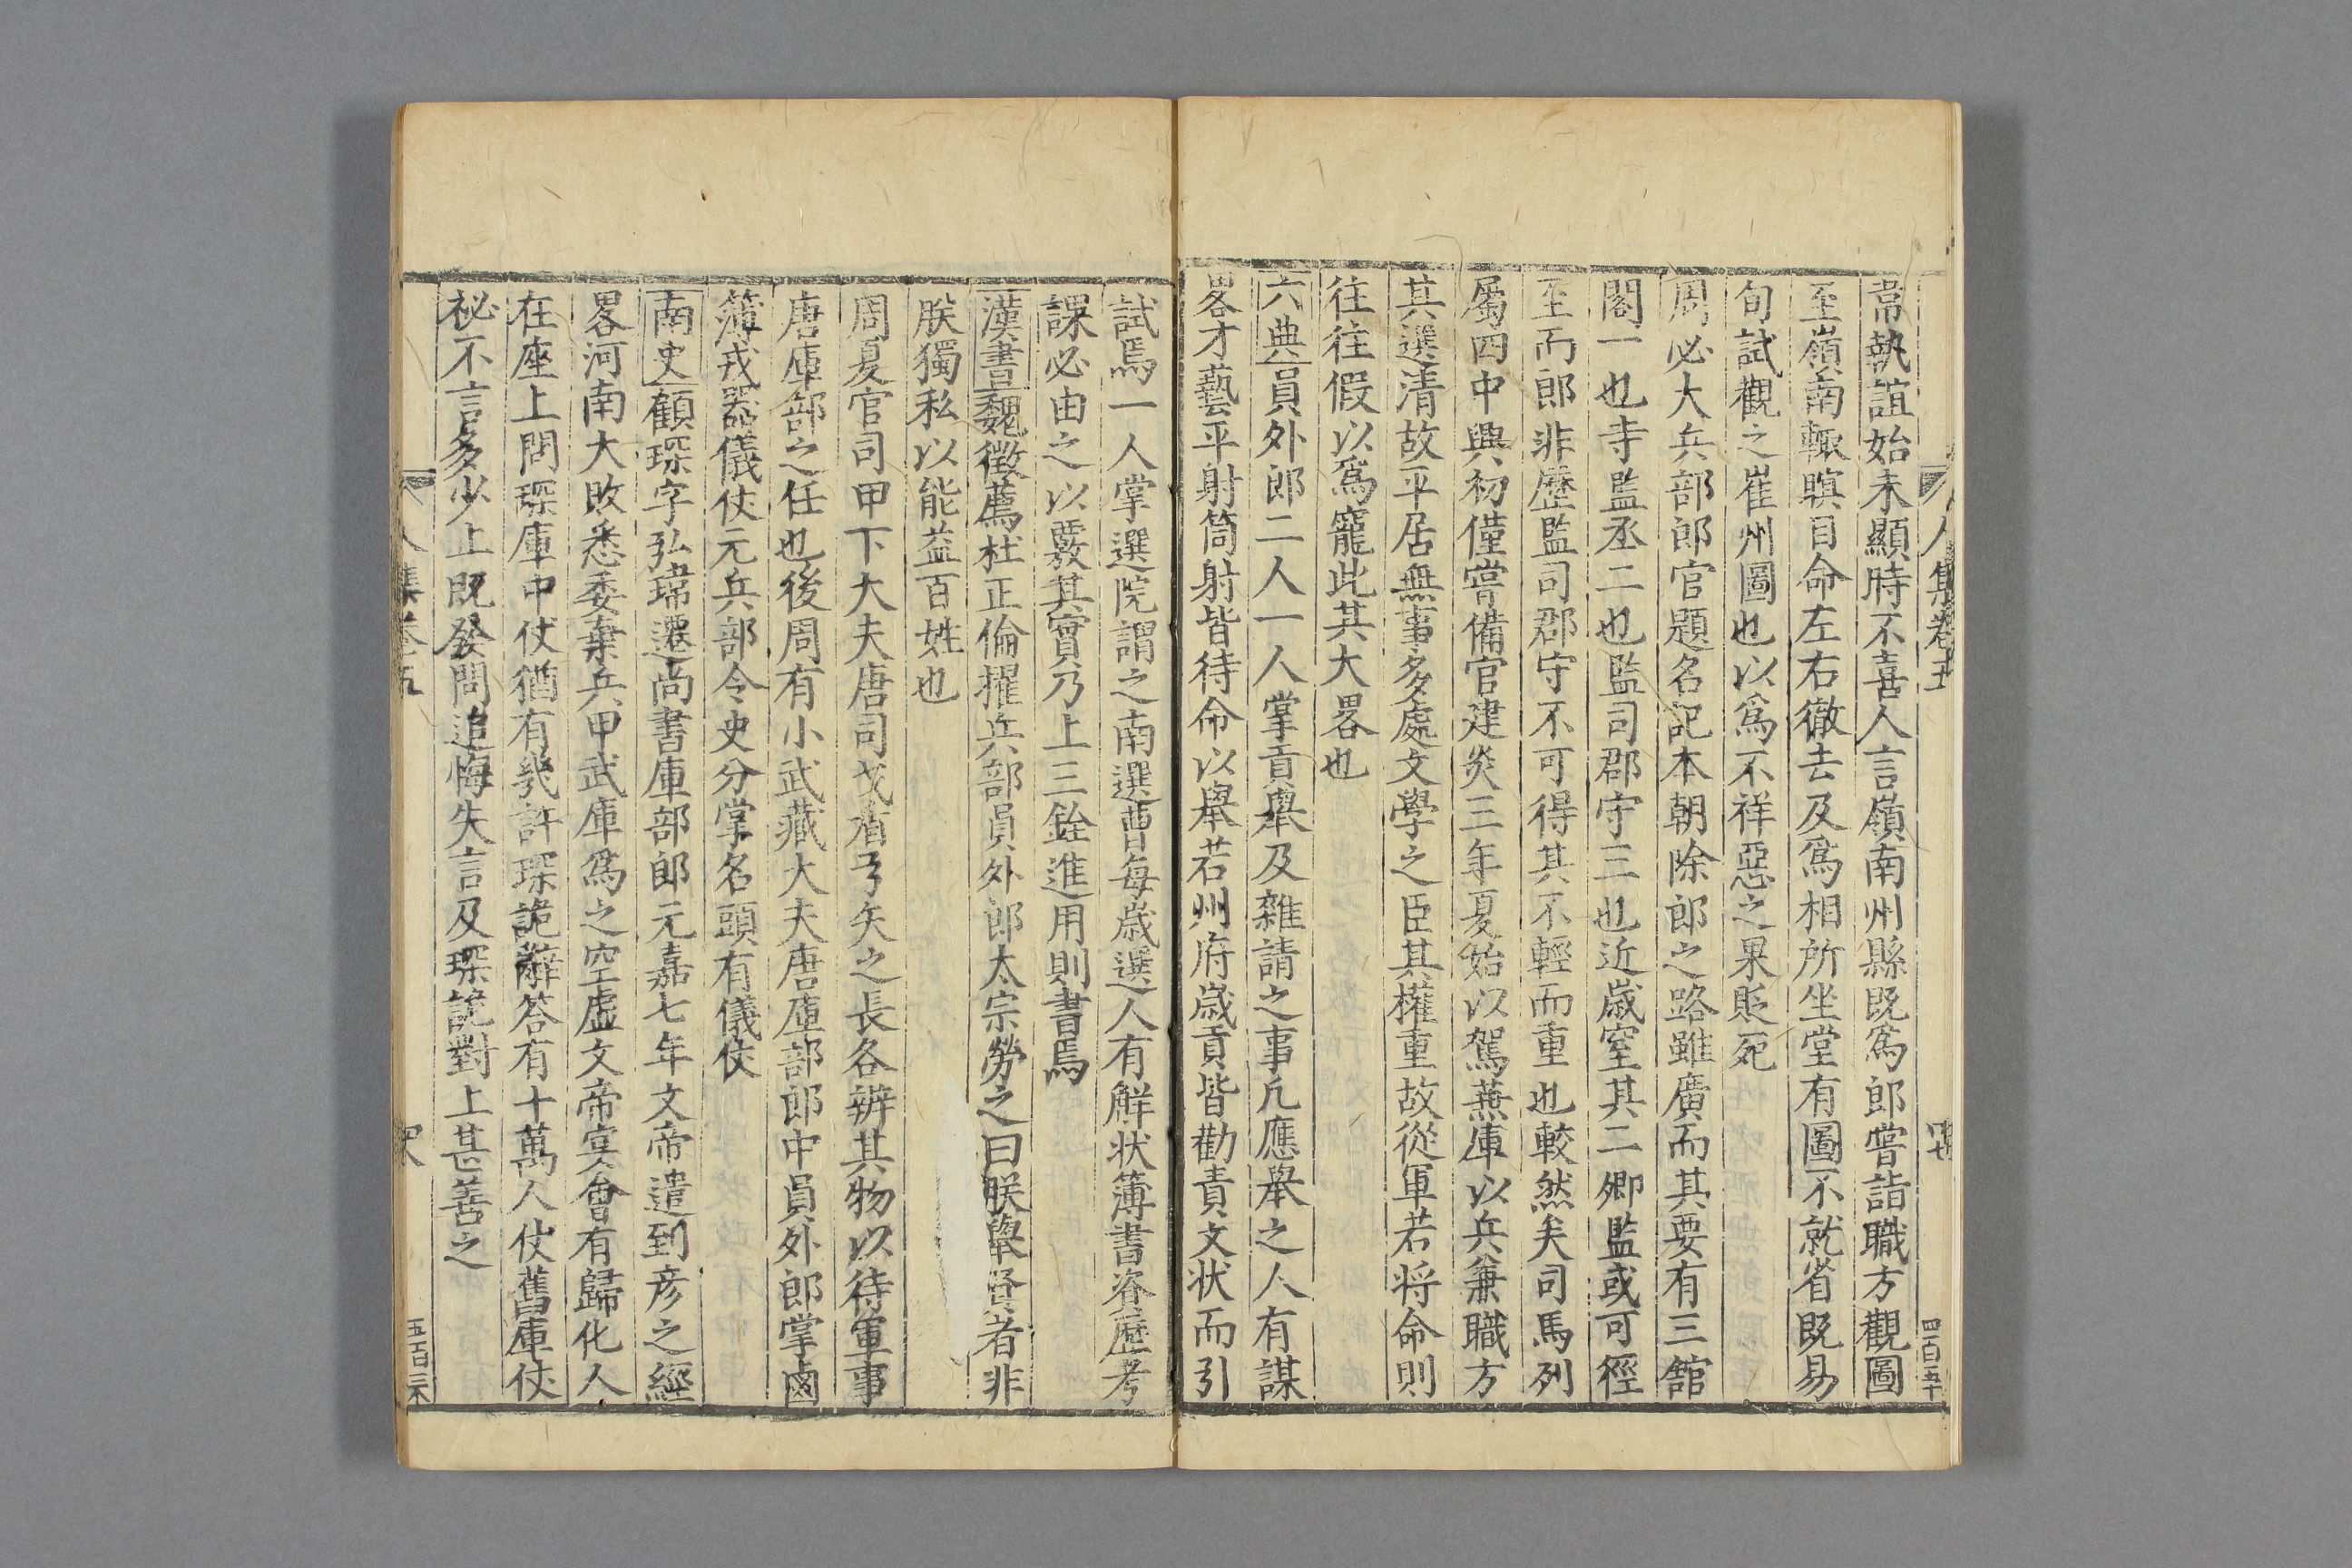 韋執誼始未顯時不喜人言嶺南州縣既爲郎嘗詣職方觀圖
至嶺南輙瞑目命左右徹去及爲相所坐堂有圖不就省既易
旬試觀之崔州圖也以爲不祥惡之果貶死
周必大兵部郎官題名記本朝除郎之路雖廣而其要有三舘
閣一也寺監丞二也監司郡守三也近歲窒其二卿監或可徑
至而郎非歷監司郡守不可得其不輕而重也較然矣司馬列
屬四中興初僅嘗備官建炎三年夏始以駕兼庫以兵兼職方
其選清故平居無事多處文學之臣其權重故從軍若將命則
往往假以爲寵此其大畧也
六典員外郎二人一人掌貢舉及雜請之事凡應舉之人有謀
畧才藝平射筒射皆待命以舉若州府歲貢皆勸責文状而引
試焉一人掌選院謂之南選曹每歲選人有解状簿書咨歷考
課必由之以覈其實乃上三銓進用則書焉
漢書魏徵薦杜正倫擢兵部員外郎太宗勞之曰朕舉贤者非
朕獨私以能益百姓也
周夏官司甲下大夫唐司戈盾弓矢之長各辨其物以待軍事
唐庫部之任也後周有小武藏大夫唐庫部郎中員外郎掌鹵
簿戎器儀仗元兵部令史分掌名頭有儀仗
南史顧琛字弘瑋遷尚書庫部郎元嘉七年文帝遣到彦之經
畧河南大敗悉委棄兵甲武庫爲之空虛文帝宴會有歸化人
在座上問琛庫中仗猶有幾許琛詭辭答有十萬人仗舊庫仗
祕不言多少上既發問追悔失言及琛詭對上甚善之